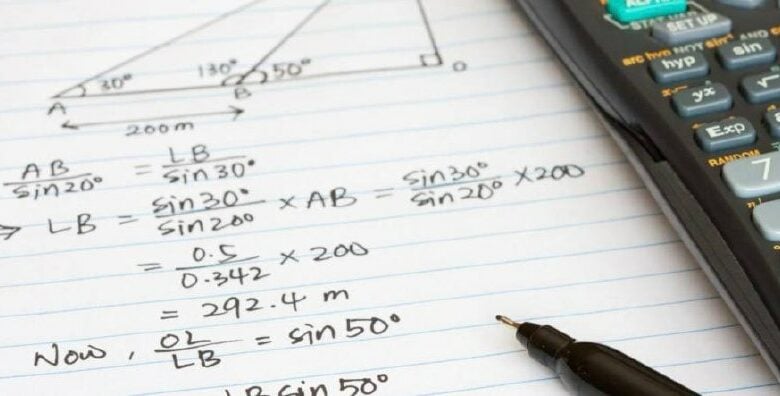 30° 130° 50°
A B O
200m
AB/sin20° = LB/sin30°
→ LB = sin30°/sin20° × AB = sin30°/sin20° ×200
= 0.5/0.342 × 200
= 292.4 m
Now, OL/LB = sin50°
LB sin 50°
ALPHA
STAT SET UP
arc hyp NOT sin⁻¹ AND
hyp sin
yx √
Exp
RANDOM
7